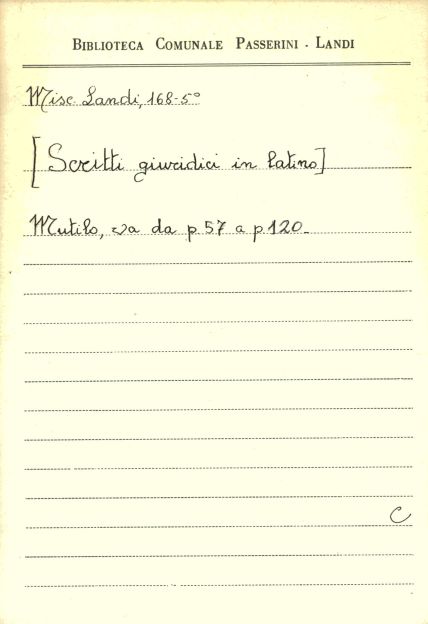 BIBLIOTECA COMUNALE PASSERINI - LANDI
Misc. Landi, 168-5°
[Scritti giuridici in latino]
Mutilo, va da p. 57 a p. 120.
C